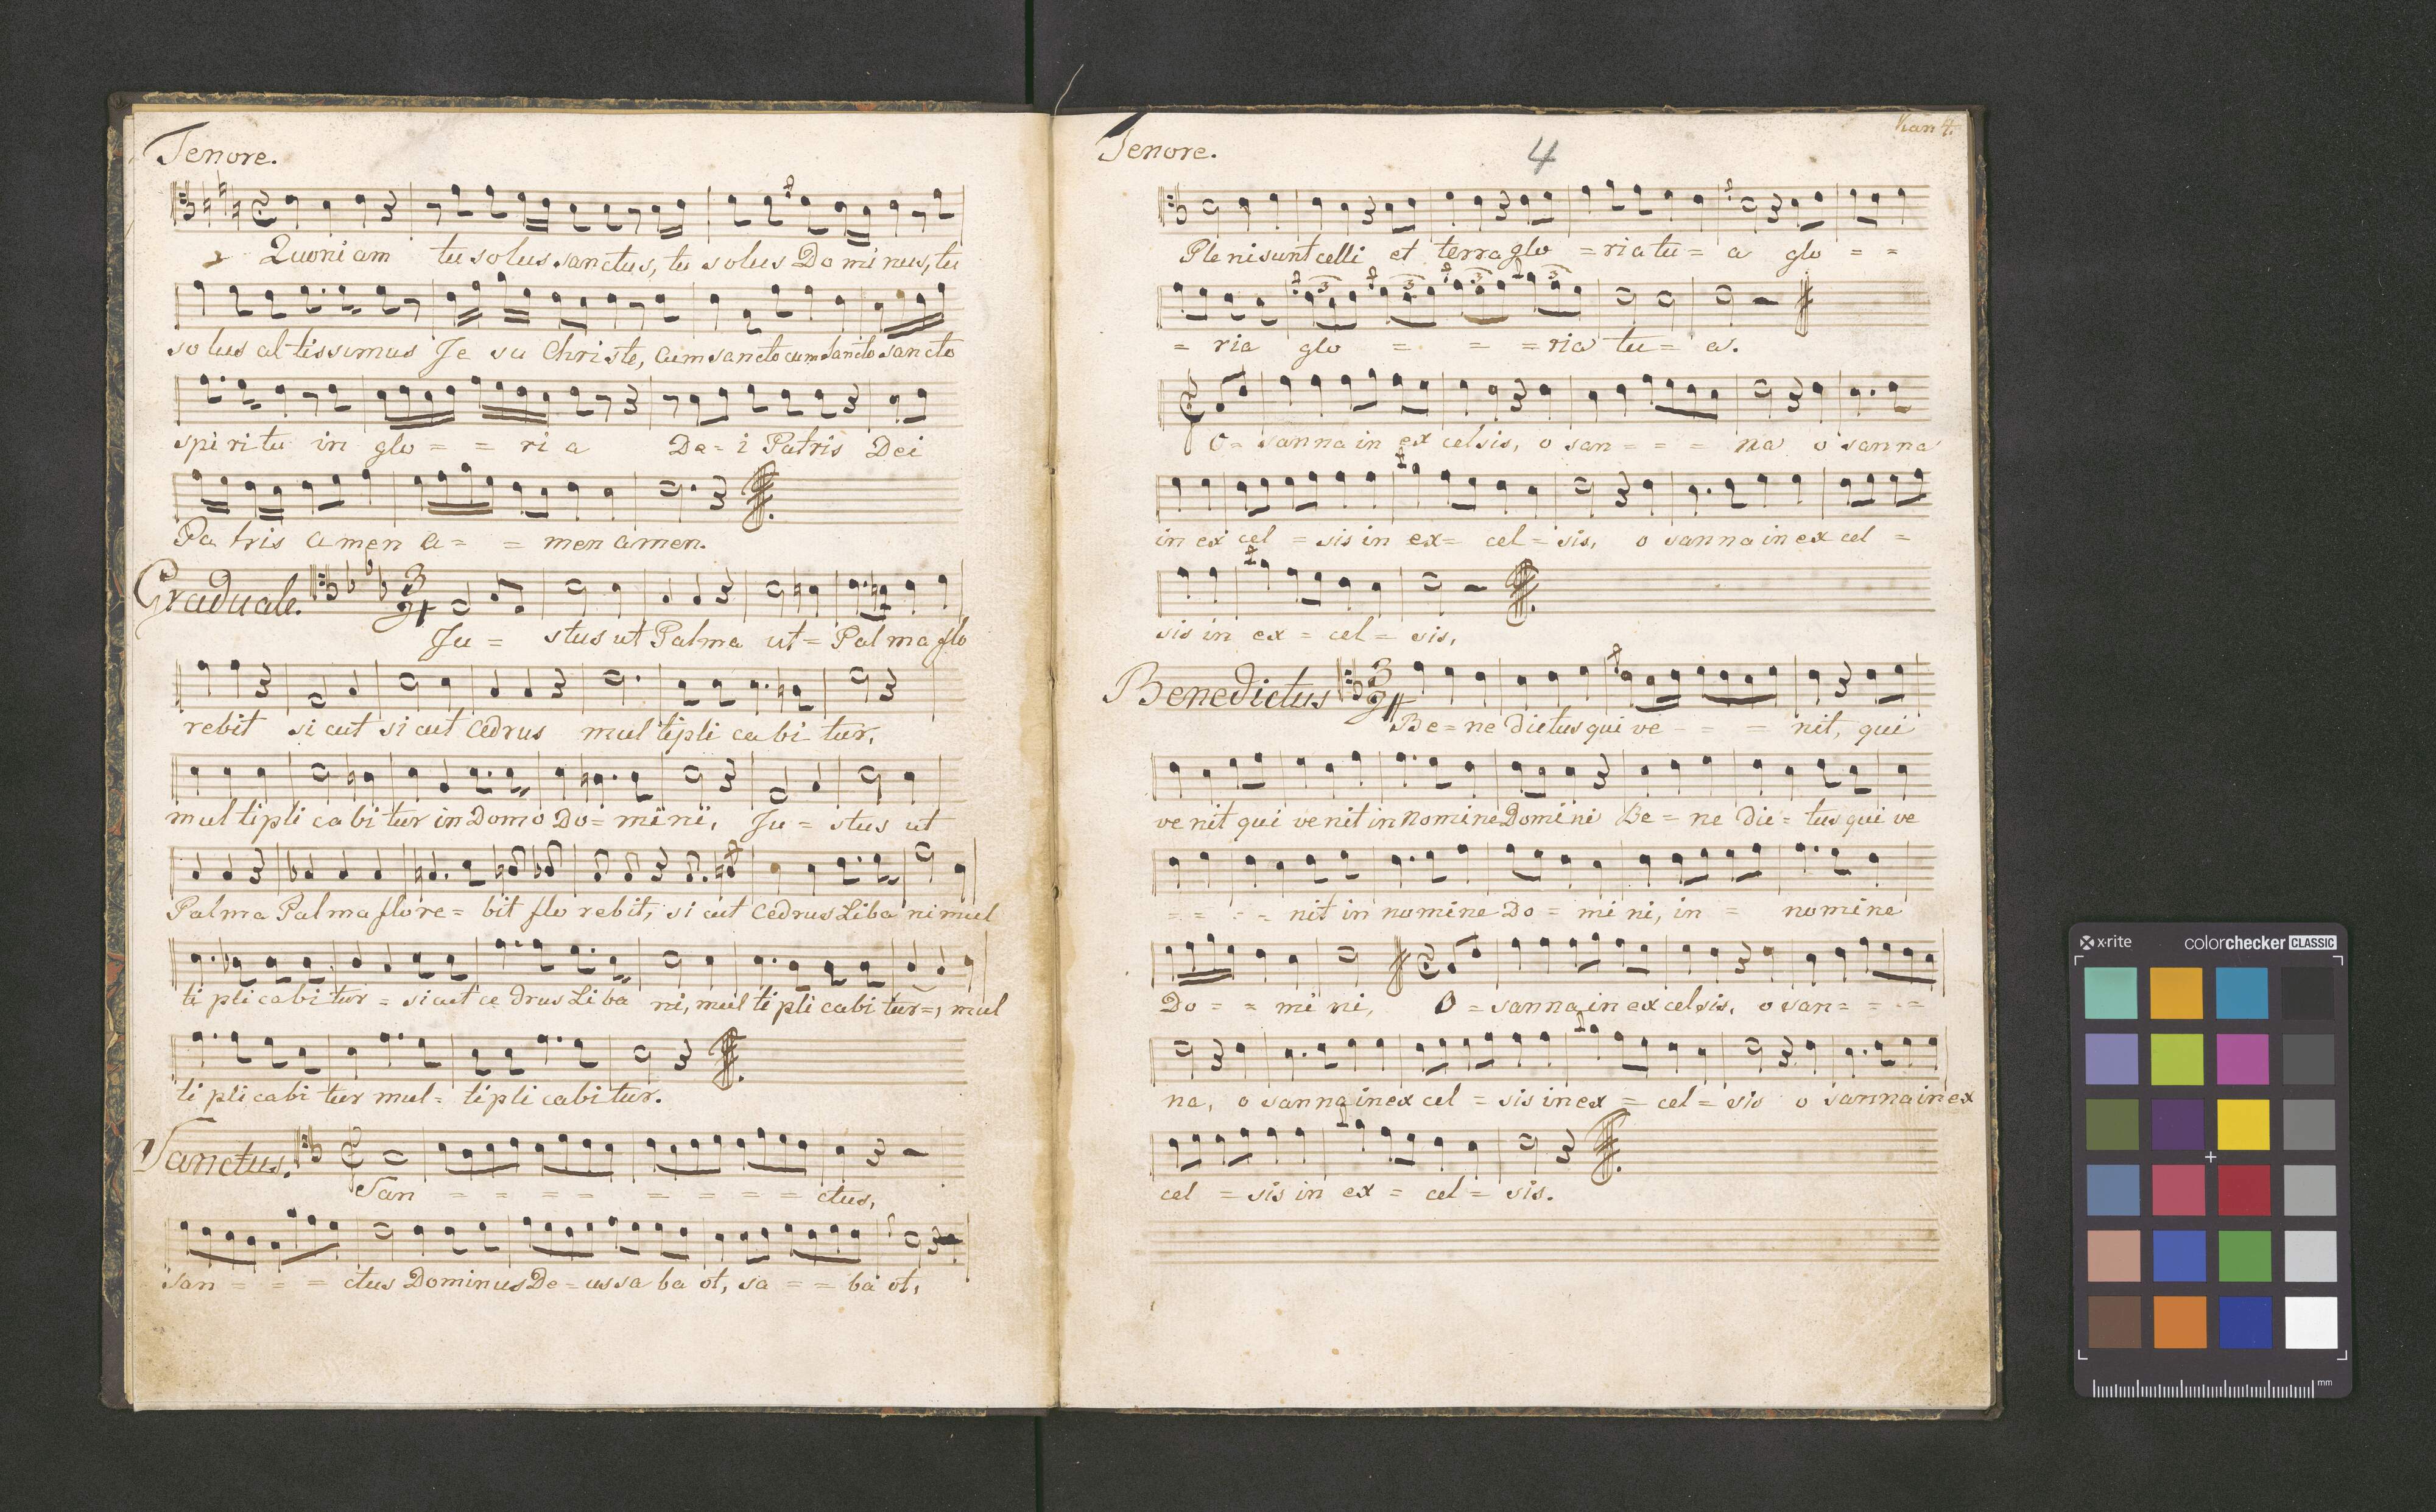 Tenore.
Quoniam tu solus sanctus, tu solus Dominus, tu
solus altissimus Je su Christe, cum sancto cum sancto sancto
spi ri tu in glo = = ri a De = i Patris Dei
Pa tris amen a = = men amen.
Graduale.
3
4
Ju = stus ut Palma ut = Pal ma flo
rebit si cut si cut cedrus mul tipli ca bi tur,
mul tipli ca bi tur in Domo Do = mi ni, Ju = stus ut
Palma Palma flo re = bit flo rebit, si cut cedrus Liba ni mul
ti pli cabi tur = si cut ce drus Li ba ni, mul ti pli cabi tur =, mul
ti pli cabi tur mul = ti pli cabi tur.
Sanctus.
San = = = = = = = = ctus,
San = = = ctus Dominus De = us sa ba ot, sa = = ba ot,
Tenore.
4
Ple ni sunt celli et terra glo = ria tu = a glo = =
3 3 3 3
= ria glo = = = ria tu = a.
O = sanna in ex celsis, o san = = = na o sanna
in ex cel = sis in ex = cel = sis, o sanna in ex cel =
sis in ex = cel = sis,
Benedictus
3
4
Be = ne dictus qui ve = = = nit, qui
ve nit qui ve nit in nomine Domi ni Be = ne dic = tus qui ve
= = = = nit in nomine Do = mi ni, in = nomine
Do = = mi ni, O = sanna in ex celsis, o san = = =
na, o sanna in ex cel = sis in ex = cel = sis o sanna in ex
cel = sis in ex = cel = sis.
x-rite colorchecker CLASSIC
mm